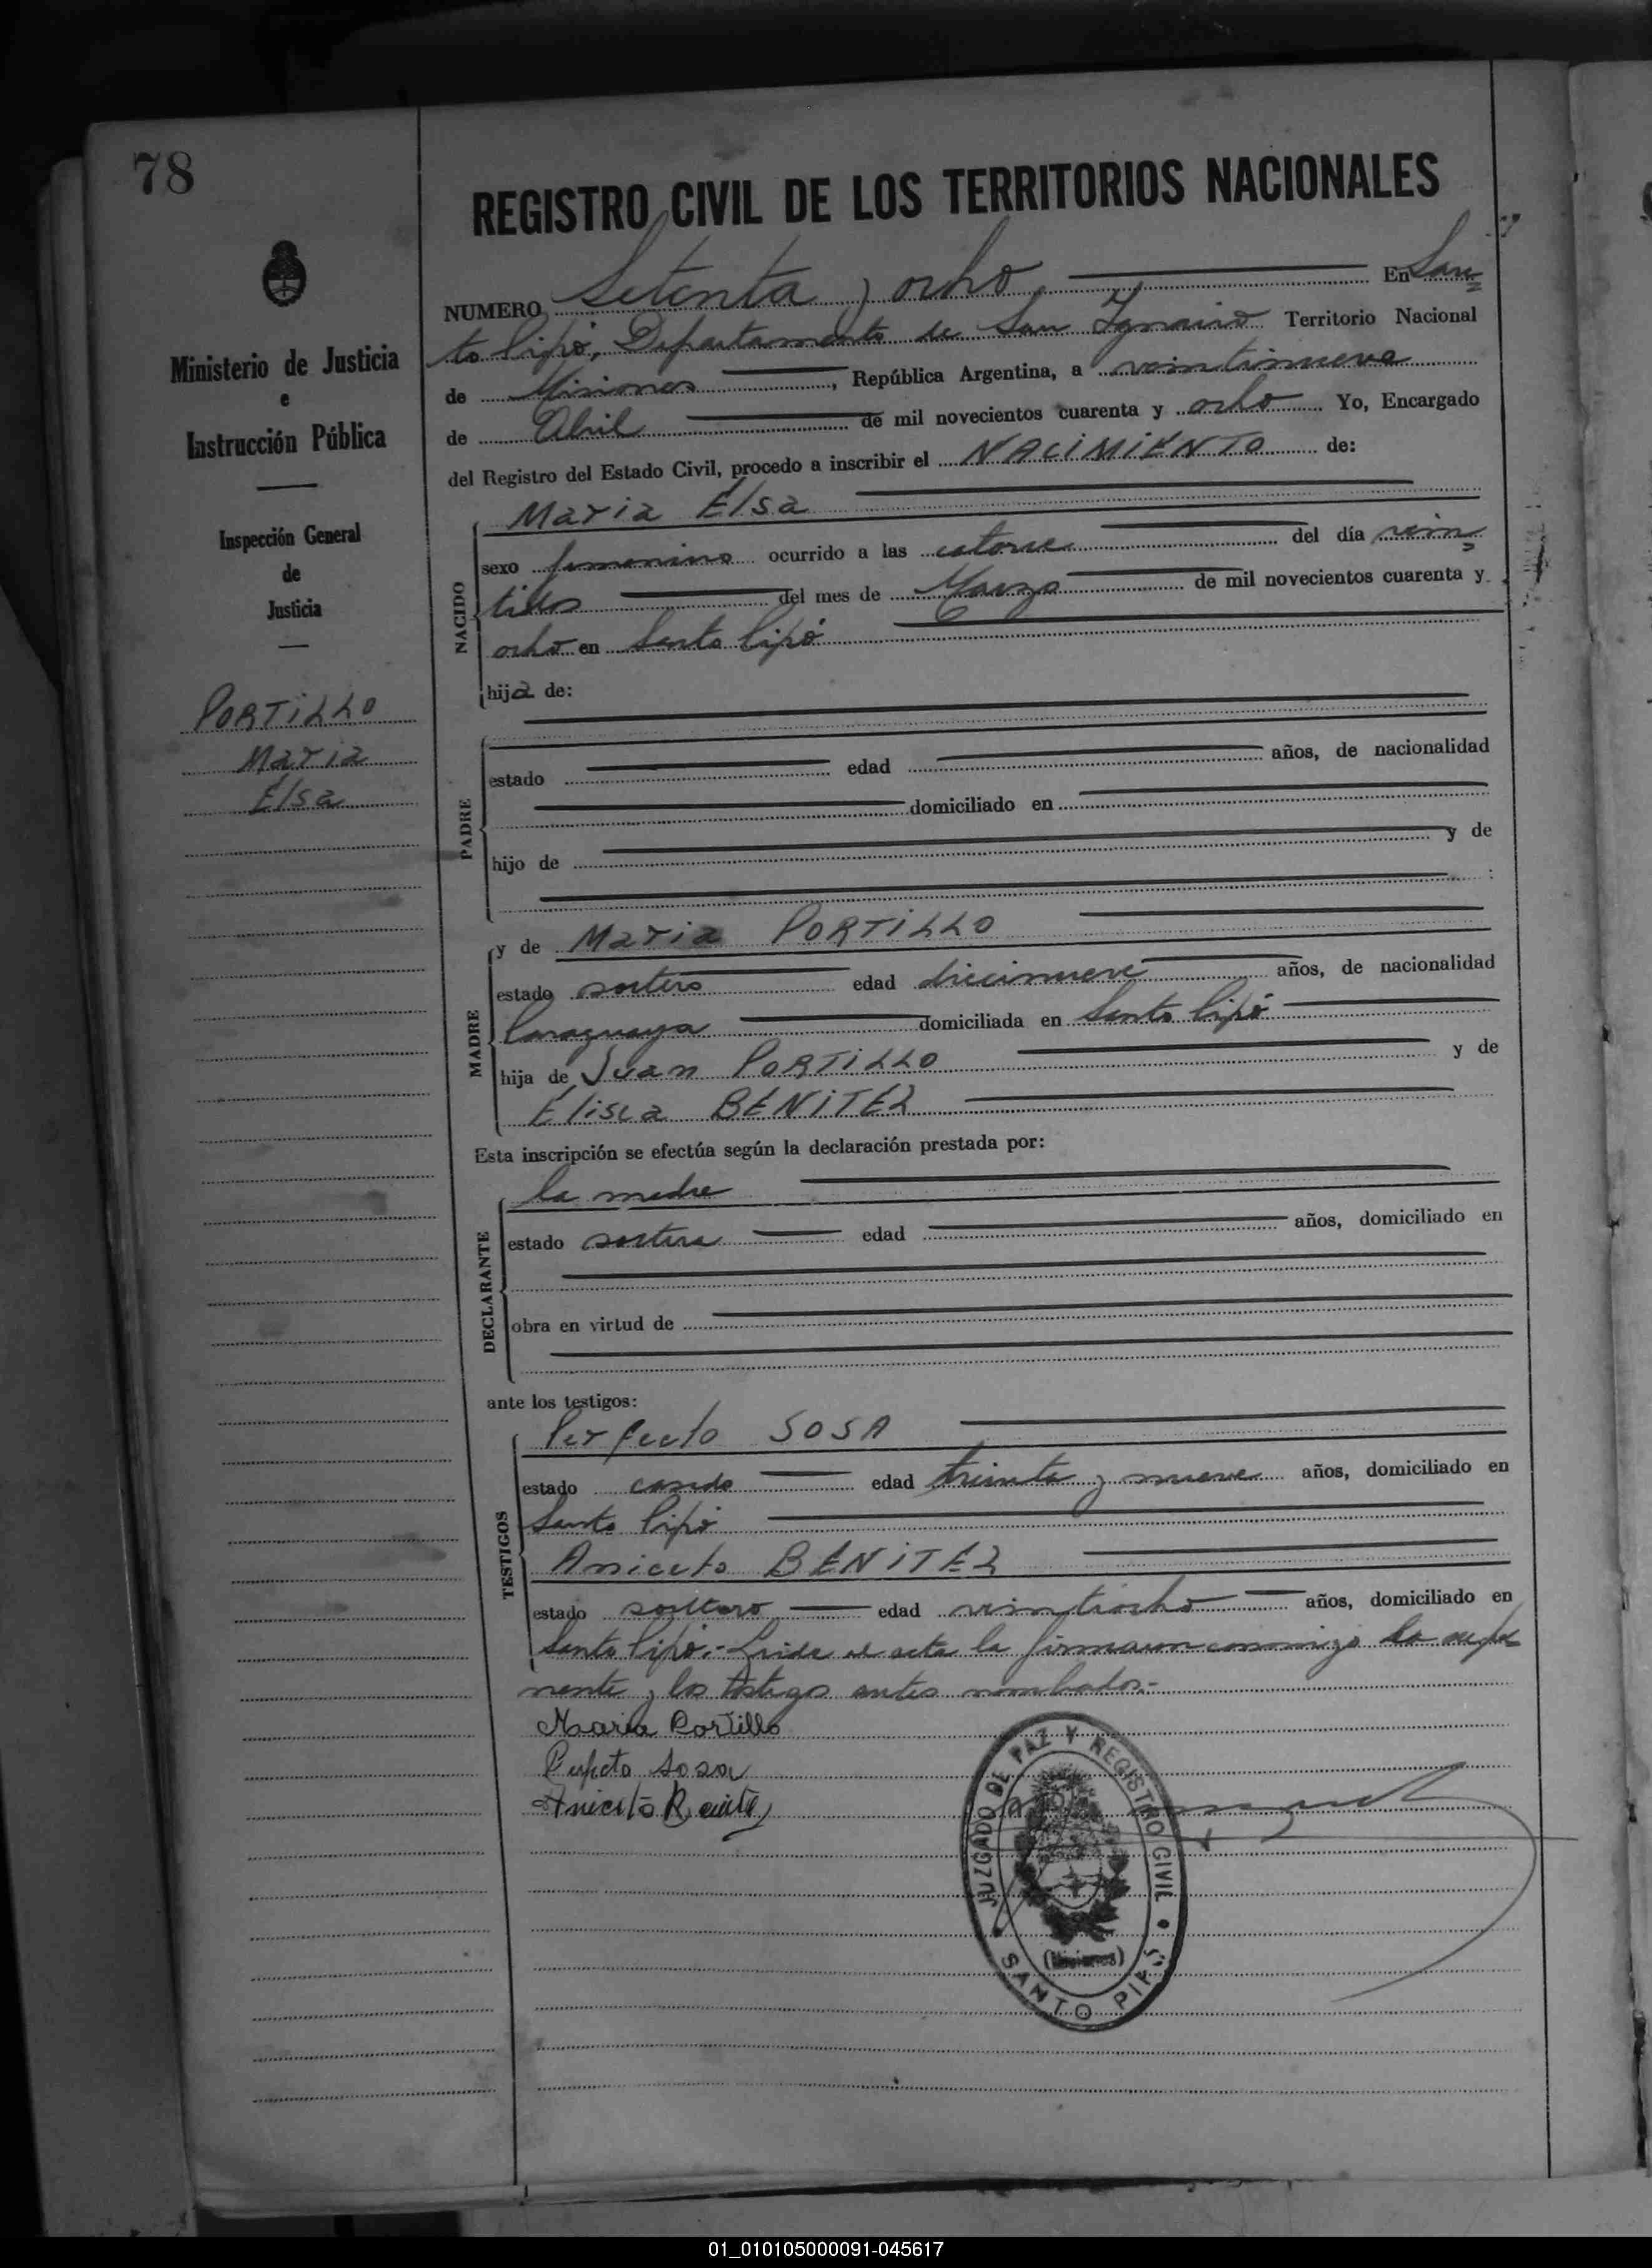 78
REGISTRO CIVIL DE LOS TERRITORIOS NACIONALES
Ministerio de Justicia
e
Instrucción Pública
Inspección General
de
Justicia
PORTILLO
Maria
Elsa
NUMERO Setenta y ocho En San
to Pipó, Departamento de San Ignacio Territorio Nacional
de Misiones, República Argentina, a veintinueve
de Abril de mil novecientos cuarenta y ocho Yo, Encargado
del Registro del Estado Civil, procedo a inscribir el NACIMIENTO de:
NACIDO
Maria Elsa
sexo femenino ocurrido a las catorce del día vein
tidos del mes de Marzo de mil novecientos cuarenta y
ocho en Santo Pipó
hija de:
PADRE
estado edad años, de nacionalidad
domiciliado en
hijo de y de
:
MADRE
y de Maria PORTILLO
estado soltera edad diecinueve años, de nacionalidad
Paraguaya domiciliada en Santo Pipó
hija de Juan PORTILLO y de
BENITEZ
Esta inscripción se efectúa según la declaración prestada por:
DECLARANTE
la madre
estado soltera edad años, domiciliado en
obra en virtud de
ante los testigos:
TESTIGOS
Perfecto SOSA
estado casado edad treinta y nueve años, domiciliado en
Santo Pipó
Aniceto BENITEZ
estado soltero edad veintiocho años, domiciliado en
Santo Pipó.- Leida el acta la firmaron conmigo la expo
nente y los testigos antes nombrados.-
Maria Portillo
Perfecto Sosa
Aniceto Benitez
JUZGADO DE PAZ Y REGISTRO CIVIL
(Misiones)
SANTO PIPÓ
01_010105000091-045617